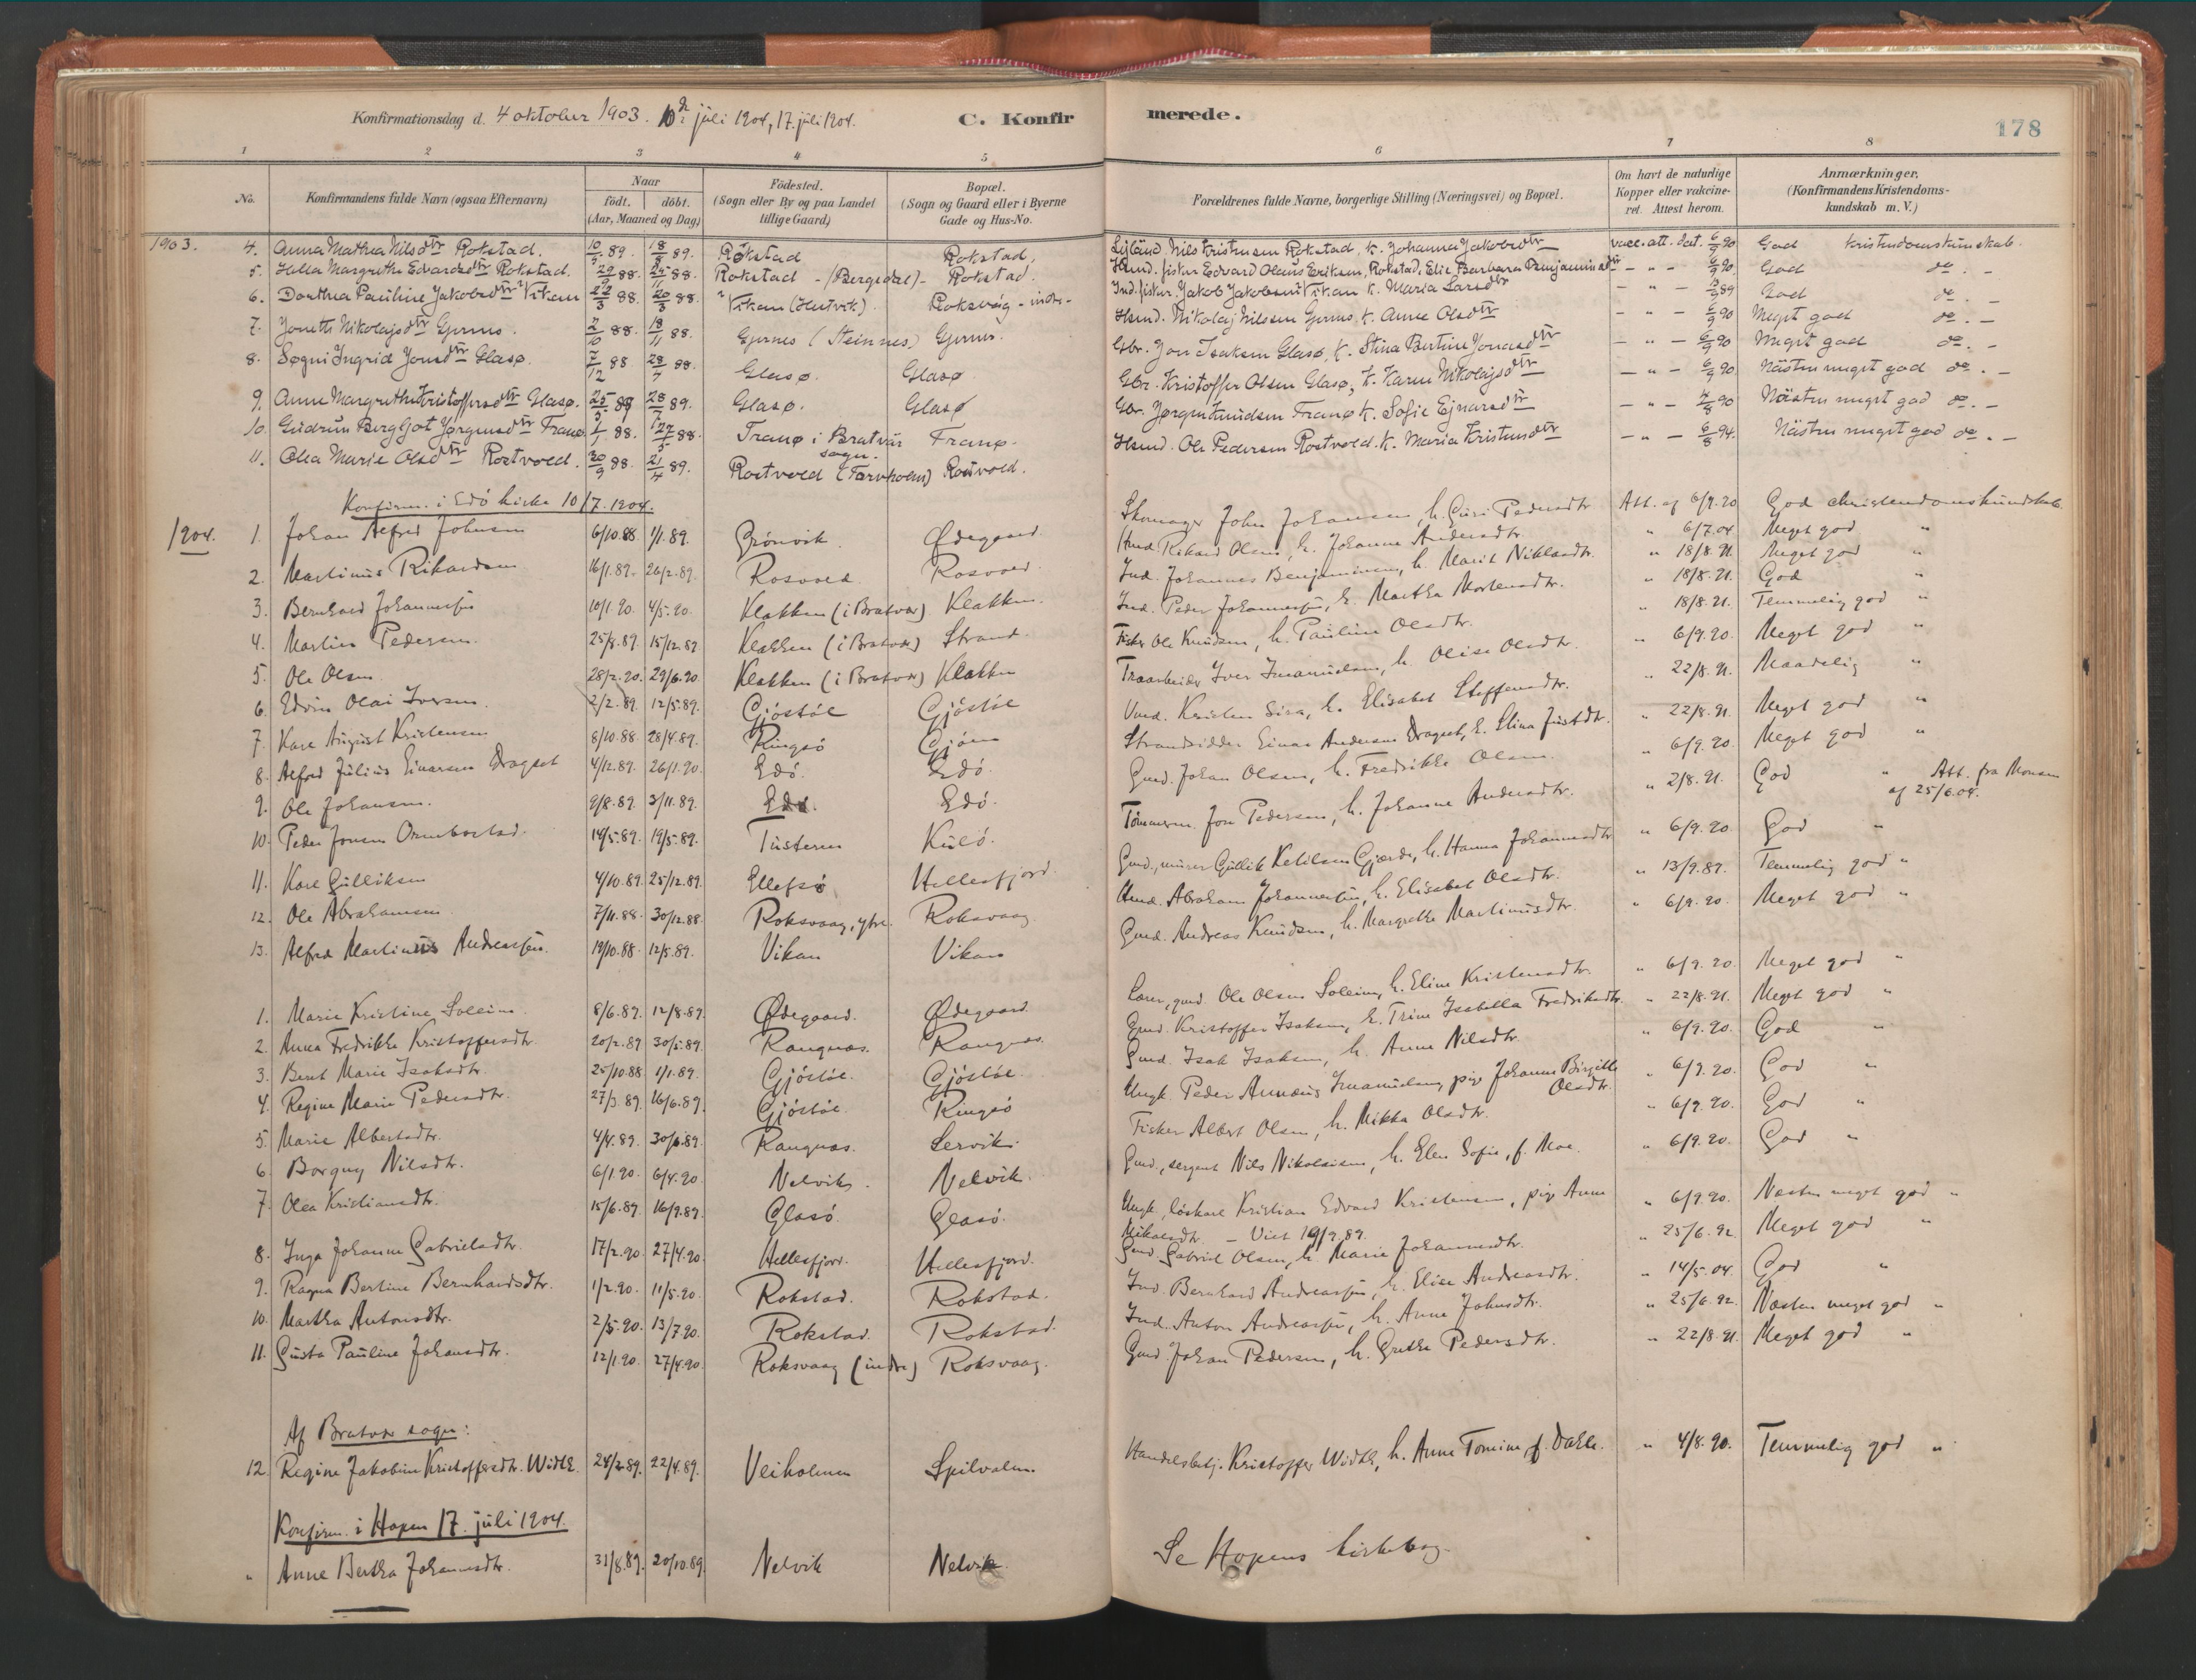 Konfirmationsdag d. 4 oktober 1903. 10de juli 1904, 17. juli 1904. C. Konfirmerede. 178
1 2 3 4 5 6 7 8
No. Konfirmandens fulde Navn (ogsaa Efternavn) Naar født. døbt. (Aar, Maaned og Dag) Fødested. (Sogn eller By og paa Landet tillige Gaard) Bopæl. (Sogn og Gaard eller i Byerne Gade og Hus-No. Forældrenes fulde Navne, borgerlige Stilling (Næringsvei) og Bopæl. Om havt de naturlige Kopper eller vakcineret. Attest herom. Anmærkninger. (Konfirmandens Kristendomskundskab m. V.)
1903. 4. Anna Mathea Nilsdtr Rokstad. 89. 89. Rokstad Rokstad. Nils Kristensen Rokstad, k. Johanna Jakobsdtr vacc. att. dat. 6/9 90 God Kristendomskundskab.
5. Margrethe Edvardsdtr Rokstad. 88. 88. Rokstad - (Bergsdal) - Rokstad. Hsmd. fisker Edvard Olaus Eriksen, Rokstad, Elie Barbara Benjaminsdtr - " - 6/9 90. God do. -
6. Dorthea Pauline Jakobsdtr Vikan 22/3 88. 20/3 88. Vikan (Hutvik). Roksvåg - indre - Ind. fisker. Jakob Jakobsen Vikan k. Maria Larsdtr - " - 89 God do. -
7. Jonetta Nikolajsdtr Gjernes. 2/10 88. 18/11 88. Gjernes (Steinnes) Gjernes. Hsmd. Nikolaj Nilssen Gjernes, k. Anne Olsdtr - " - 6/9 90 Meget god do. -
8. Søgni Ingrid Jonsdtr Glasø. 7/12 88. 28/4 88. Glasø. Glasø. Gbr. Jon Isaksen Glasø, k. Stina Bertine Jonasdtr - " - 6/9 90 Meget god do. -
9. Anne Margrethe Kristoffersdtr Glasø. 25/5 89 28/7 89. Glasø. Glasø Gbr. Kristoffer Olsen Glasø, k. Karen Nikolajsdtr - " - 6/9 90 Nästen meget god do. -
10. Gudrun Bergljot Jørgensdtr Franø 1/1 88. 27/5 88. Tranø i Bratvär sogn. Franø. Gbr. Jørgen Knudsen Franø k. Sofie Ejnarsdtr - " - 4/8 90 Nästen meget god do. -
11. Olea Marie Olsdtr Rostvold. 30/9 88. 21/4 89. Rostvold (Tarvholm) Rostvold. Hsmd. Ole Pedersen Rostvold. k. Maria Kristensdtr - " - 6/8 94. Nästen meget god do. -
Konfirm. i Edö kirke 10/7. 1904.
1904. 1. Johan Alfred Johnsen 6/10.88 1/1.89. Grönvik. Ødegaard. Skomager John Johansen, h. Guri Pedersdtr Att. af 6/9.90 God christendomskundskab.
2. Martinus Rikardsen 16/1.89. 26/2.89. Rosvold Rosvold. Hmd. Rikard Olsen, h. Johanne Andersdtr. " 6/7.04 Meget god "
3. Bernhard Johannessen 10/1.90. 4/5.90. Klakken (i Bratvær) Klakken. Ind. Johannes Benjaminsen, h. Marit Niklasdtr. " 18/8.91. Meget god "
4. Martin Pedersen. 25/8.89. 15/12.89 Klakken (i Bratvær) Strand. Ind. Peder Johannessen, h. Martha Mortensdtr. " 18/8.91. God "
5. Ole Olsen. 28/2.90. 29/6.90 Klakken (i Bratvær) Klakken Fisker Ole Knudsen, h. Pauline Olsdtr. " 18/8.91. Temmelig god "
6. Edvin Olai Iversen. 2/2.89. 12/5.89. Gjöstöl Gjöstöl Træarbeider Iver Imanuelsen, h. Olise Olsdtr. " 6/9.90. Meget god "
7. Kare August Kristensen 8/10.88 28/4.89. Ringsö Gjöen Kristen Sira, h. Elisabet Steffensdtr. " 22/8.91. Maadelig "
8. Alfred Julius Einarsen Dragset 4/12.89. 26/1.90. Edö. Edö. Strandsidder Einar Andersen Dragset, h. Stina Justdtr. " 22/8.91. Meget god "
9. Ole Johansen. 9/8.89. 3/11.89. Edö. Edö. Gmd. Johan Olsen, h. Fredrikke Olsen. " 6/9.90. Meget god "
10. Peder Jonsen Ormbostad. 14/5.89. 19/5.89. Tusteren Kulö. Tömmerm. Jon Pedersen, h. Johanne Andersdtr. " 2/8.91. God " Att. fra Monsen af 25/6.04.
11. Kare Gulliksen 4/10.89. 25/12.89. Ellefsö Hellesfjord. Gmd., murer Gullik Ketilsen Gjærde, h. Hanna Johannesdtr. " 6/9.90 God "
12. Ole Abrahamsen 7/11.88. 30/12.88. Roksvaag, ytre. Roksvaag Hmd. Abraham Johannessen, h. Elisabet Olsdtr. " 13/9.89. Temmelig god "
13. Alfred Martinus Andreassen. 19/10.88. 12/5.89. Vikan Vikan Gmd. Andreas Knudsen, h. Margrethe Martinusdtr. " 6/9.90. Meget god "
1. Marie Kristine Soleim. 8/6.89. 12/8.89. Ødegaard. Ødegaard Lærer, gmd. Ole Olsen Soleim, h. Eline Kristensdtr. " 6/9.90 Meget god "
2. Anna Fredrikke Kristoffersdtr. 20/2.89 30/5.89. Rangnæs. Rangnæs. Gmd. Kristoffer Isaksen, h. Trine Isabella Fredriksdtr. " 22/8.91. Meget god "
3. Beret Marie Isaksdtr. 25/10.88 1/1.89. Gjöstöl. Gjöstöl. Gmd. Isak Isaksen, h. Anne Nilsdtr. " 6/9.90. God "
4. Regine Marie Pedersdtr. 27/3.89. 16/6.89. Gjöstöl Ringsö Ungk. Peder Annæus Imanuelsen, pige Johanne Birgitte Olsdtr. " 6/9.90. God "
5. Marie Albertsdtr. 4/4.89. 30/6.89. Rangnæs. Lervik. Fisker Albert Olsen, h. Mikka Olsdtr. " 6/9.90. God "
6. Borgny Nilsdtr. 6/1.90 6/4.90 Nelvik. Nelvik. Gmd., sergent Nils Nikolaisen, h. Elen Sofie, f. Moe. " 6/9.90. God "
7. Olea Kristiansdtr. 15/6.89. 16/9.89. Glasö. Glasö. Ungk., löskarl Kristian Edvard Kristensen, pige Anne Mikaelsdtr. - Viet 19/9.89. " 6/9.90. Næsten meget god "
8. Inga Johanne Gabrielsdtr. 17/2.90. 27/4.90. Hellesfjord. Hellesfjord. Gmd. Gabriel Olsen, h. Marie Johannesdtr. " 25/6.92. Meget god "
9. Ragna Bertine Bernhardsdtr. 1/2.90. 11/5.90. Rokstad. Rokstad. Ind. Bernhard Andreassen, h. Elise Andreasdtr. " 14/5.04. God "
10. Martha Antonsdtr. 2/5.90. 13/7.90. Rokstad. Rokstad. Ind. Anton Andreassen, h. Anne Johnsdtr. " 25/6.92. Næsten meget god "
11. Gusta Pauline Johansdtr. 12/1.90. 27/4.90. Roksvaag (indre) Roksvaag. Gmd. Johan Pedersen, h. Grethe Pedersdtr. " 22/8.91. Meget god "
Af Bratvær sogn:
12. Regine Jakobine Kristoffersdtr. Width. 24/2.89. 22/4.89. Veiholmen Spilvalen. Handelsbetj. Kristoffer Width, h. Anne Tomine, f. Dahle. " 4/8.90. Temmelig god "
Konfirm. i Hopen 17. juli 1904.
" Anne Bertha Johannesdtr. 31/8.89. 20/10.89. Nelvik Nelvik Se Hopens kirkebog.